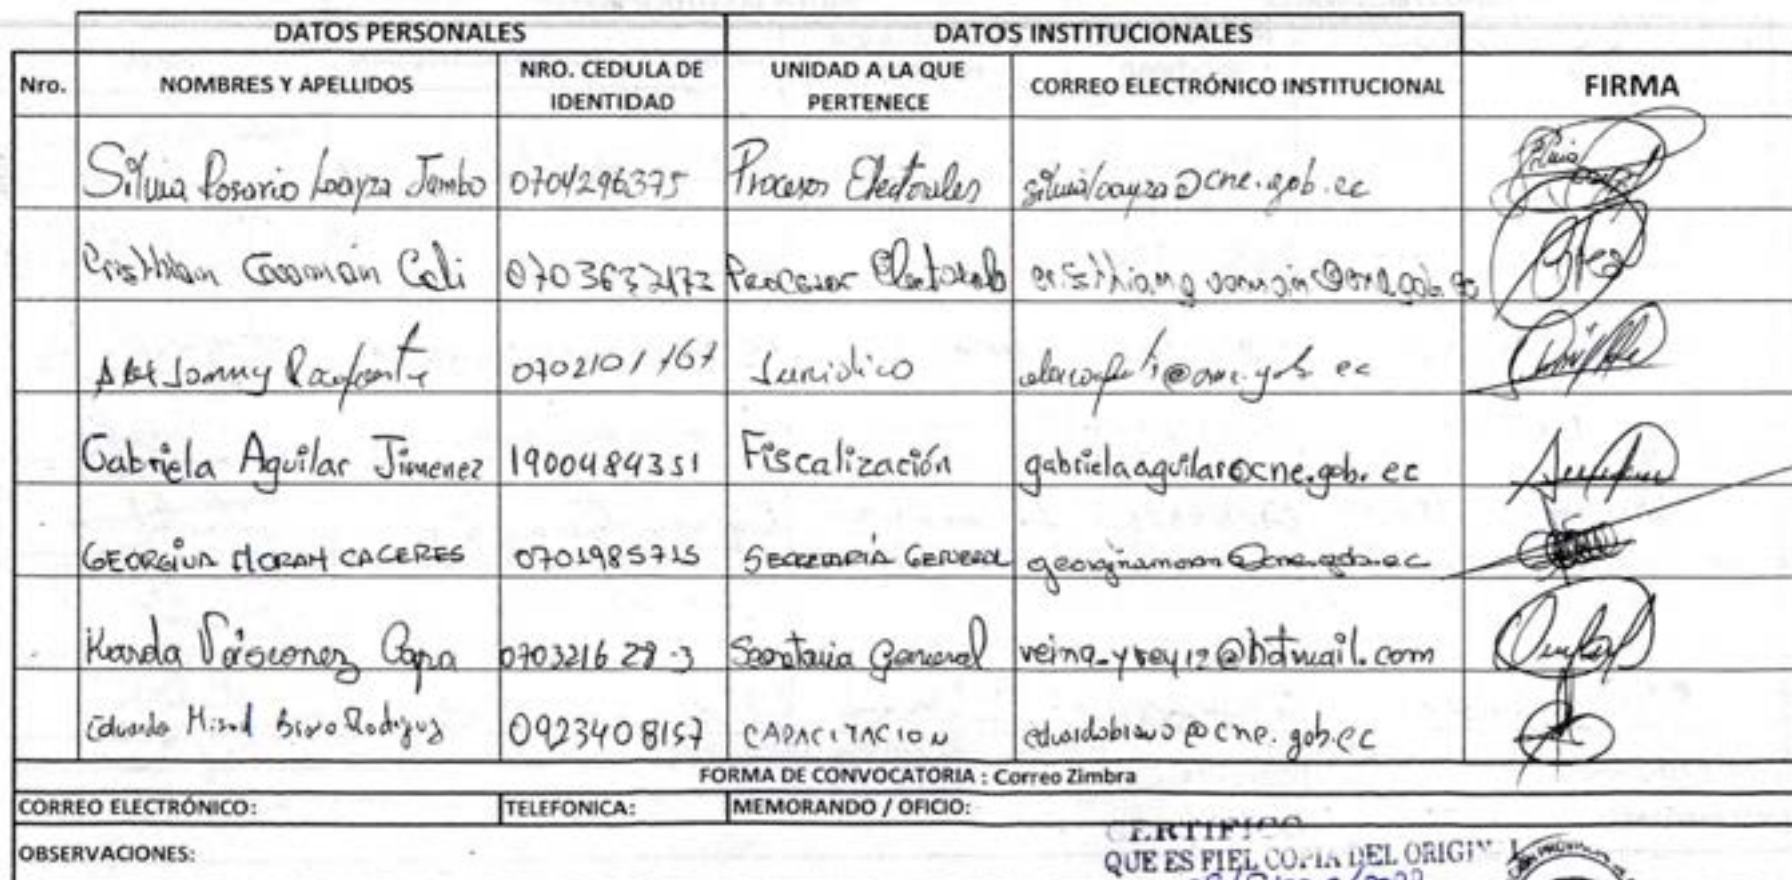 DATOS PERSONALES DATOS INSTITUCIONALES
Nro. NOMBRES Y APELLIDOS NRO. CEDULA DE IDENTIDAD UNIDAD A LA QUE PERTENECE CORREO ELECTRÓNICO INSTITUCIONAL FIRMA
Silvia Rosario Loayza Jambo 0704296375 Procesos Electorales silvialoayza@cne.gob.ec
Cristhian Guaman Celi Procesos Electorales
Jonny 0702101767 Juridico
Gabriela Aguilar Jimenez 1900484351 Fiscalización gabrielaaguilar@cne.gob.ec
GEORGINA MORAN CACERES 0701985715 SECRETARÍA GENERAL georginamoran@cne.gob.ec
Vásconez Capa 070321628-3 Secretaria General reina-yrey12@hotmail.com
Eduardo Misael Bravo Rodriguez 0923408157 CAPACITACION eduardobravo@cne.gob.ec
FORMA DE CONVOCATORIA : Correo Zimbra
CORREO ELECTRÓNICO: TELEFONICA: MEMORANDO / OFICIO:
OBSERVACIONES:
CERTIFICO
QUE ES FIEL COPIA DEL ORIGINAL